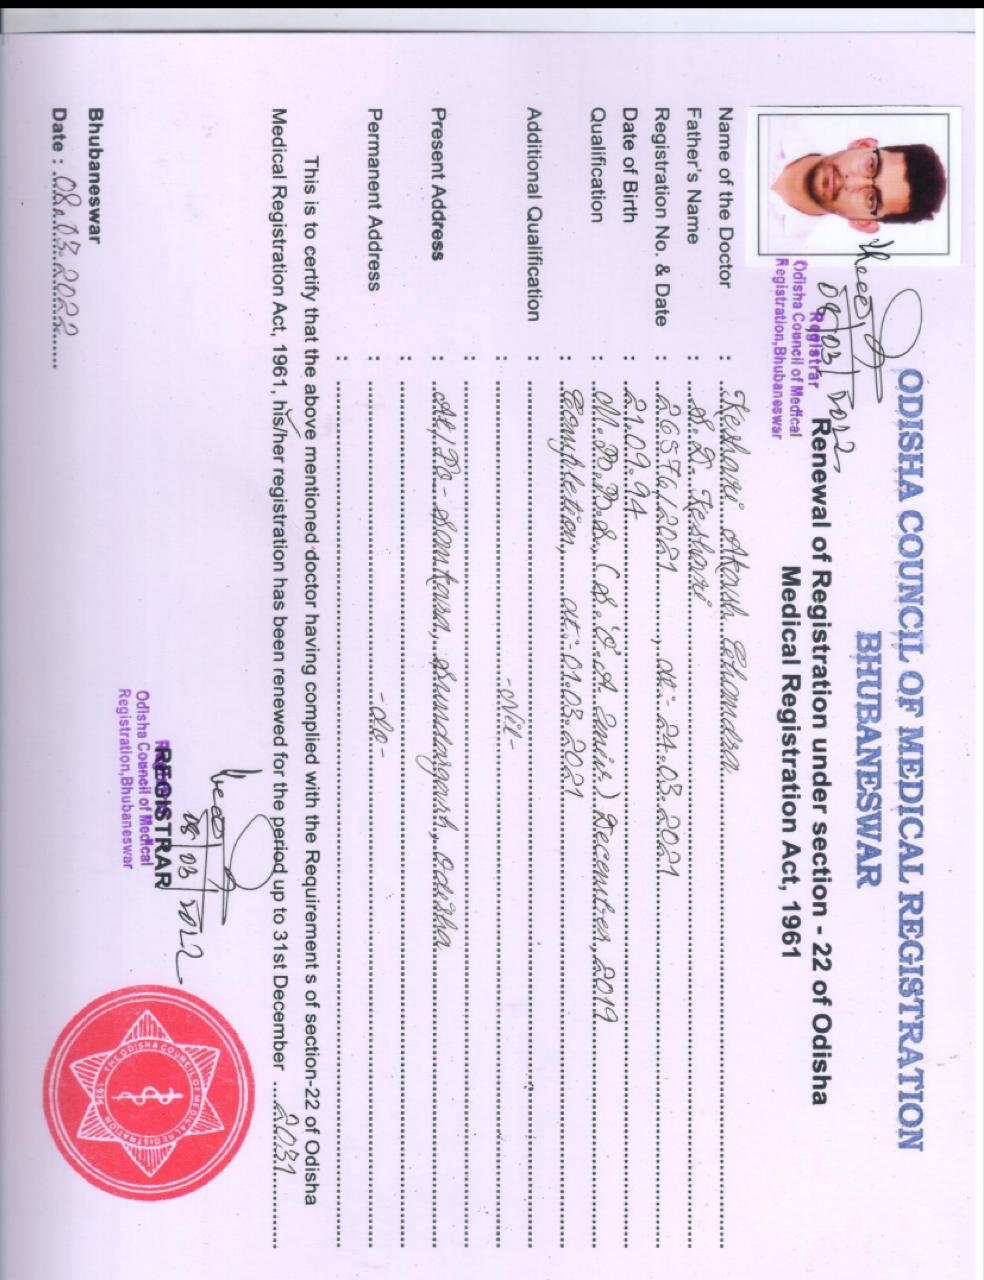 ODISHA COUNCIL OF MEDICAL REGISTRATION
BHUBANESWAR
Renewal of Registration under section - 22 of Odisha
Medical Registration Act, 1961
08/03/2022
Registrar
Odisha Council of Medical
Registration,Bhubaneswar
Name of the Doctor : Keshari Akash Chandan
Father's Name : S. D. Keshari
Registration No. & Date : /2021, dt:- 24.03.2021
Date of Birth : 21.09.94
Qualification : M.B.B.S., (S.'O'.A. Univ.) December, 2019
Completion, dt:- 01.03.2021
Additional Qualification : -Nil-
Present Address : At/Po- Sundargarh, Odisha
Permanent Address : -do-
This is to certify that the above mentioned doctor having complied with the Requirement s of section-22 of Odisha
Medical Registration Act, 1961, his/her registration has been renewed for the period up to 31st December 2031
08/03/2022
REGISTRAR
Registrar
Odisha Council of Medical
Registration,Bhubaneswar
Bhubaneswar
Date : 08.03.2022
THE ODISHA COUNCIL OF MEDICAL REGISTRATION
1936